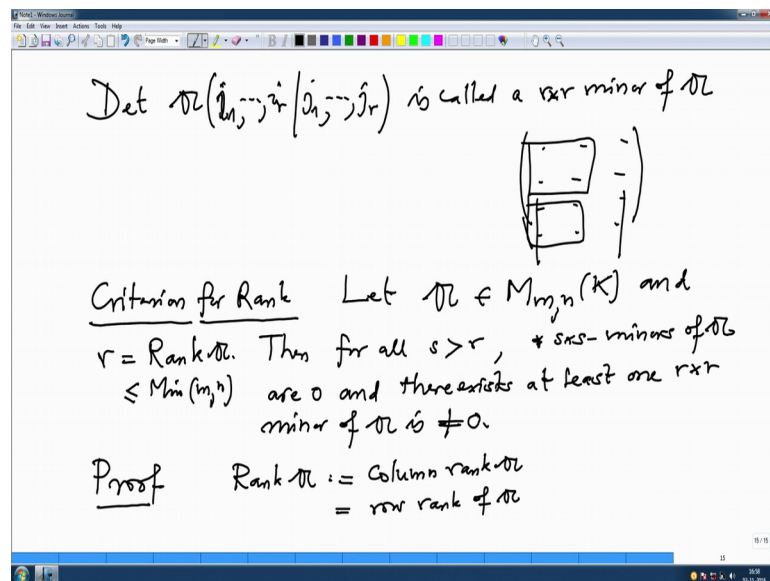 Note1 - Windows Journal
File Edit View Insert Actions Tools Help
Page Width
B I
Det 𝔄(i₁,---,iᵣ | j₁,---,jᵣ) is called a r×r minor of 𝔄
Criterion for Rank Let 𝔄 ∈ M_{m,n}(K) and
r = Rank 𝔄. Then for all s>r, * s×s-minors of 𝔄
≤ Min(m,n) are 0 and there exists at least one r×r
minor of 𝔄 is ≠0.
Proof Rank 𝔄 := column rank 𝔄
= row rank of 𝔄
15/15
15
16:58